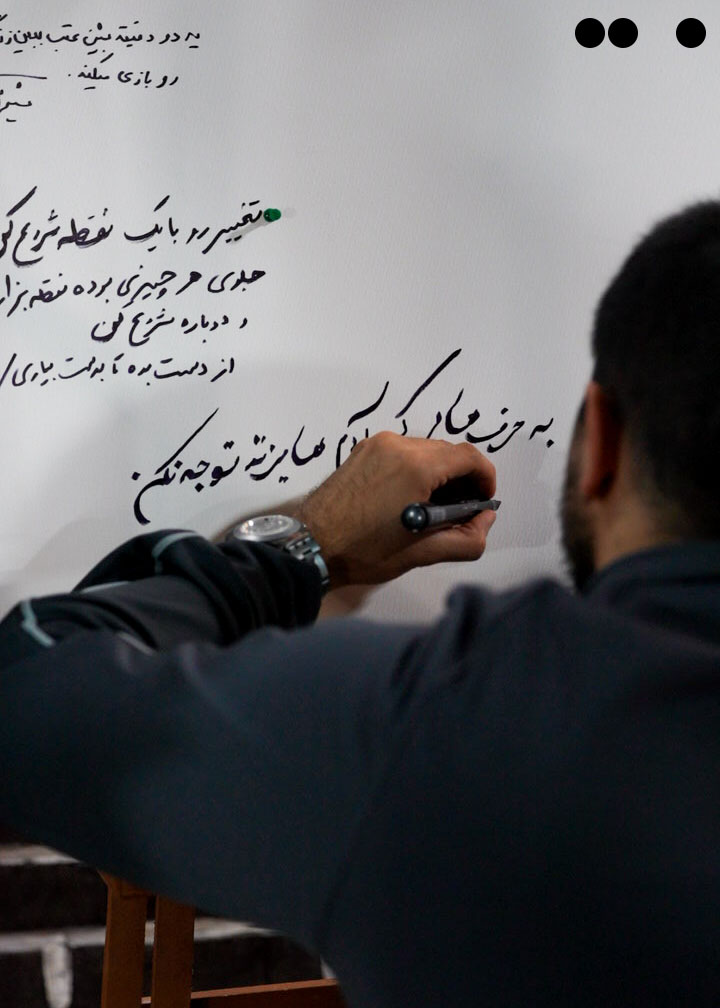 یه دو دقیقه بشین عقب ببین
رو بازی میکنه.
تغییر رو با یک نقطه شروع کن
جلوی هر چیزی بوده نقطه بزار
و دوباره شروع کن
از دست بده تا بدست بیاری
به حرف هایی که آدم ها میزنند توجه نکن.